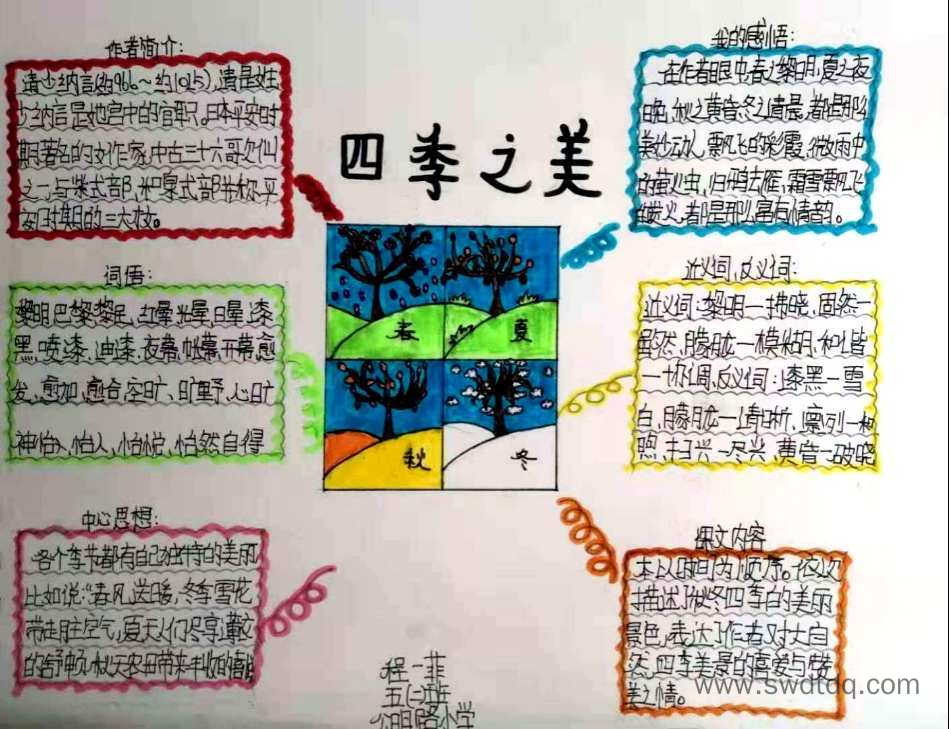 四季之美
作者简介:
清少纳言(约966~约1025),清是姓
少纳言是她宫中的官职。日本平安时
期著名的女作家,中古三十六歌仙
之一,与紫式部,和泉式部并称平
安时期的三大才女。
词语:
黎明 巴黎 黎民, 红晕 光晕, 日晕, 漆
黑, 喷漆, 油漆, 夜幕, 帐幕, 开幕, 愈
发, 愈加, 愈合, 空旷、旷野, 心旷
神怡、怡人, 怡悦, 怡然自得
中心思想:
各个季节都有自己独特的美丽
比如说:“春风送暖,冬季雪花
带走脏空气,夏天人们尽享
的舒畅,秋天农田带来丰收的喜悦
我的感悟:
在作者眼中春之黎明,夏之夜
晚,秋之黄昏,冬之清晨,都是那么
美妙动人,飘飞的彩霞,微雨中
的萤火虫,归鸦去雁,霜雪飘飞
的炭火,都是那么富有情韵。
近义词,反义词:
近义词:黎明—拂晓,固然—
虽然,朦胧—模糊,和谐
—协调,反义词:漆黑—雪
白,朦胧—清晰,凛冽—和
煦,扫兴—尽兴,黄昏—破晓
课文内容
本以时间为顺序。依次
描述了秋冬四季的美丽
景色,表达了作者对大自
然,四季美景的喜爱与赞
美之情。
春
夏
秋
冬
程一菲
五(二)班
公明路小学
www.swdtdq.com